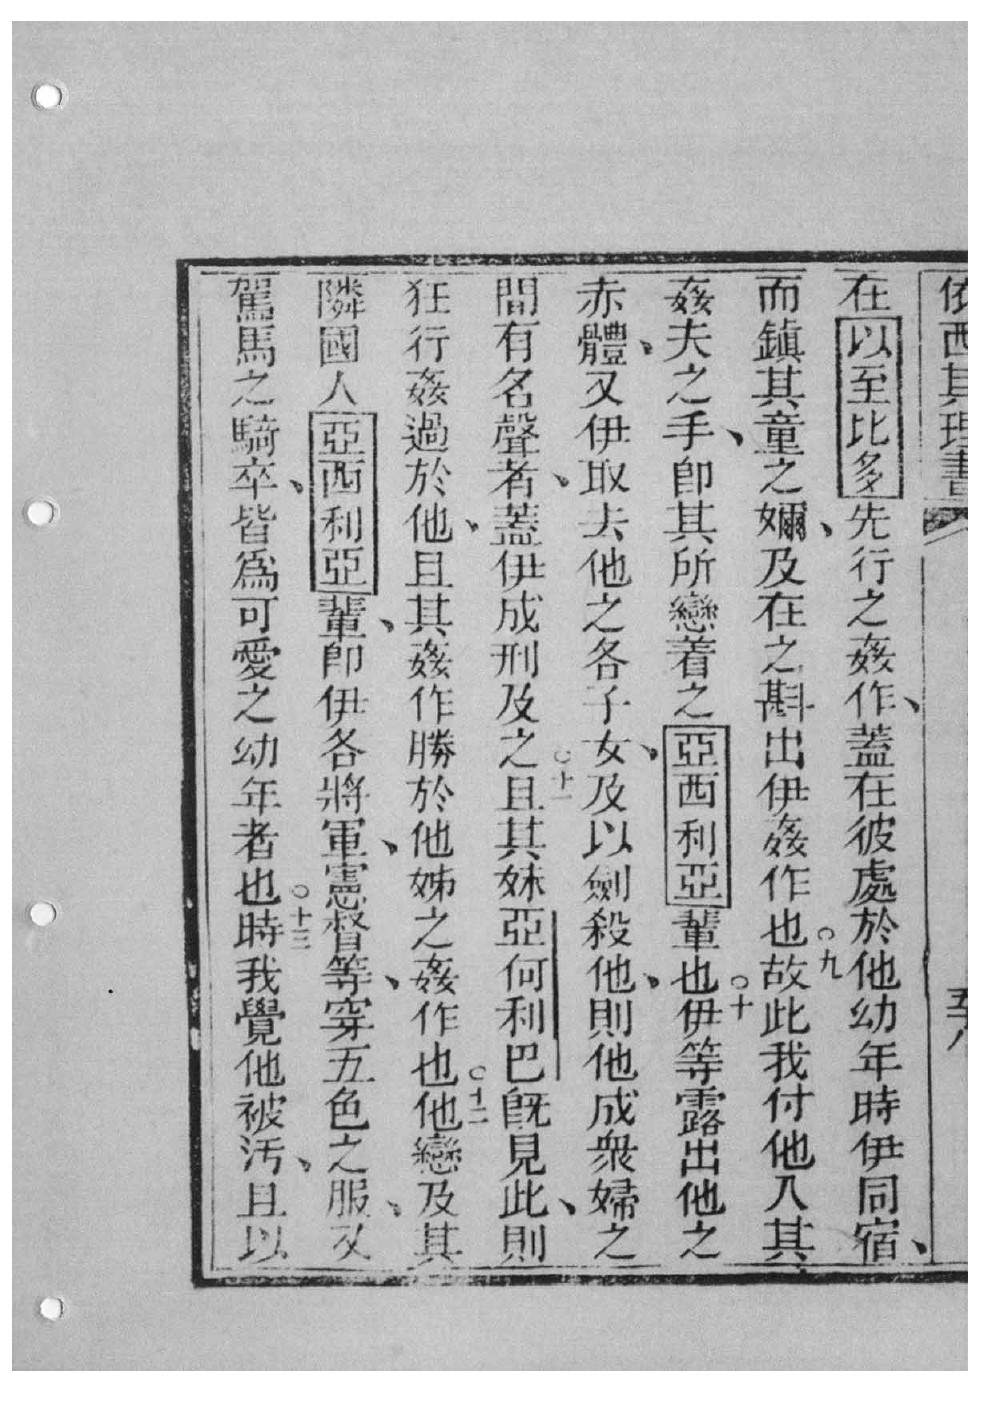 依西其理書 五八
在以至比多先行之姦作、蓋在彼處於他幼年時伊同宿、
而鎮其童之嬭、及在之斟出伊姦作也○九故此我付他入其
姦夫之手、卽其所戀着之亞西利亞輩也○十伊等露出他之
赤體、又伊取去他之各子女、及以劍殺他、則他成衆婦之
間有名聲者、蓋伊成刑及之○十一且其妹亞何利巴旣見此、則
狂行姦過於他、且其姦作勝於他姊之姦作也○十二他戀及其
隣國人亞西利亞輩、卽伊各將軍、憲督等、穿五色之服、又
駕馬之騎卒、皆爲可愛之幼年者也○十三時我覺他被汚、且以